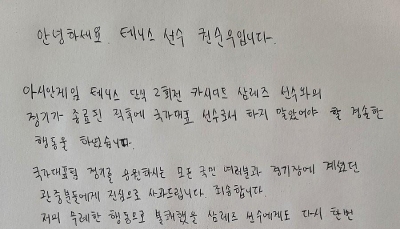 안녕하세요. 테니스 선수 권순우입니다.
아시안게임 테니스 단식 2회전 카시디트 삼레즈 선수와의
경기가 종료된 직후에 국가대표 선수로서 하지 말았어야 할 경솔한
행동을 하였습니다.
국가대표팀 경기를 응원하시는 모든 국민 여러분과 경기장에 계셨던
관중분들에게 진심으로 사과드립니다. 죄송합니다.
저의 무례한 행동으로 불쾌했을 삼레즈 선수에게도 다시 한번